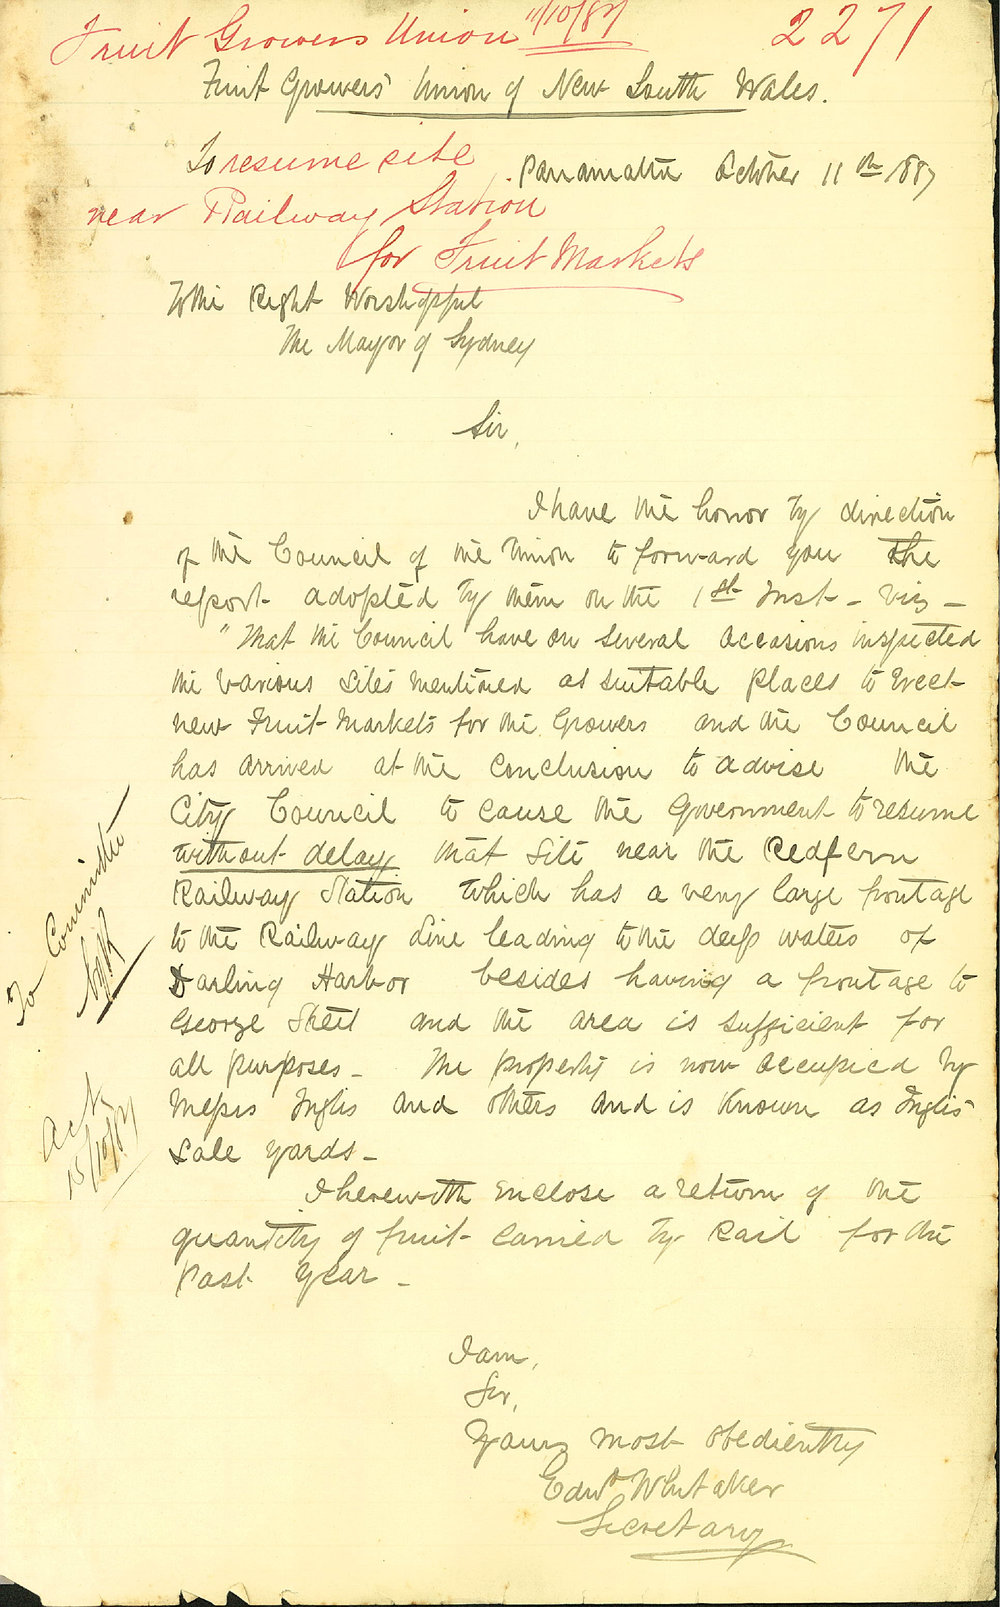 Fruit Growers Union 11/10/87
2271
Fruit Growers' Union of New South Wales.
To resume site
near Railway Station
for Fruit Markets
Parramatta October 11th 1887
To the Right Worshipful
The Mayor of Sydney
Sir,
I have the honor by direction
of the Council of the Union to forward you the
report adopted by them on the 1st Inst - viz -
"That the Council have on several occasions inspected
the various sites mentioned as suitable places to erect
new Fruit Markets for the Growers and the Council
has arrived at the conclusion to advise the
City Council to cause the Government to resume
without delay that site near the Redfern
Railway Station which has a very large frontage
to the Railway Line leading to the deep waters of
Darling Harbor besides having a frontage to
George Street and the area is sufficient for
all purposes - The property is now occupied by
Messrs Inglis and others and is known as Inglis'
Sale yards -
I herewith enclose a return of the
quantity of fruit carried by Rail for the
past year -
I am,
Sir,
Yours most obediently
Edwd Whitaker
Secretary
To Committee
15/10/87